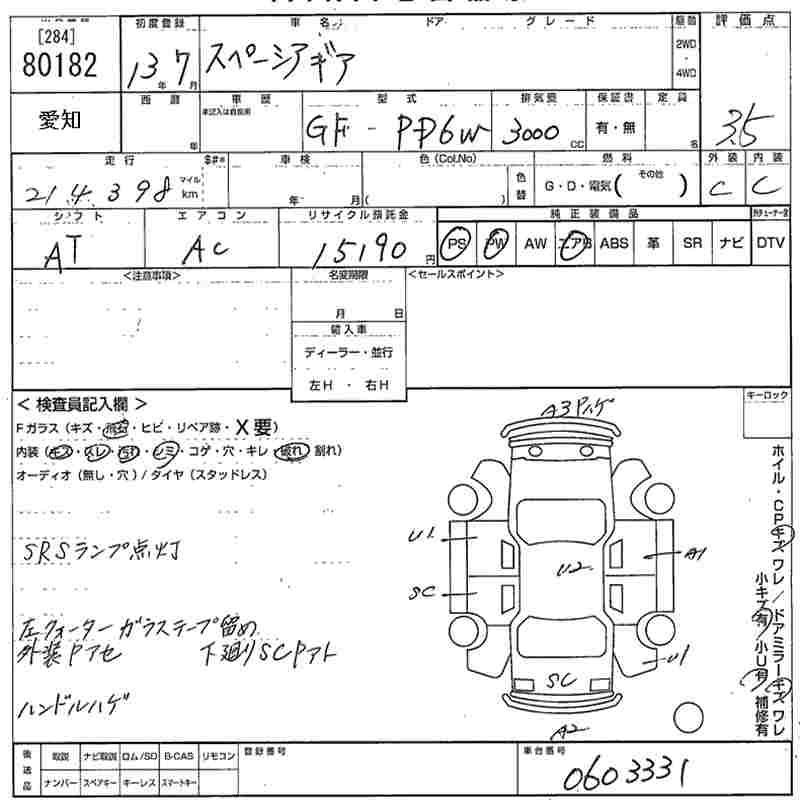 [284] 初度登録 車名 ドア グレード 駆動 評価点
80182 13年7月 スペーシアギア 2WD・4WD 3.5
愛知 西暦 年 車歴 未記入は自家用 型式 GF-PD6W 排気量 3000cc 保証書 有・無 定員 名
走行 214,398 マイル km 車検 年 月 色(Col.No) ( ) 色替 燃料 G・D・電気( その他 ) 外装 C 内装 C
シフト AT エアコン AC リサイクル預託金 15190円 純正装備品
PS PW AW エアB ABS 革 SR ナビ DTV
<注意事項> 名変期限 <セールスポイント>
月 日
輸入車
ディーラー・並行
左H・右H
<検査員記入欄> キーロック
Fガラス(キズ・・ヒビ・リペア跡・X要)
内装(キズ・スレ・汚れ・シミ・コゲ・穴・キレ・破れ 割れ)
オーディオ(無し・穴)/タイヤ(スタッドレス)
A3Pハゲ
U1
U2
A1
SC
U1
SC
A2
SRSランプ点灯
左クォーターガラステープ留め
外装Pアセ 下廻りSCPアト
ハンドルハゲ
ホイル・CPキズ ワレ/ドアミラーキズ ワレ
小キズ有 小U有 補修有
後送品 取説 ナビ取説 ロム/SD B-CAS リモコン 登録番号 車台番号
ナンバー スペアキー キーレス スマートキー 0603331